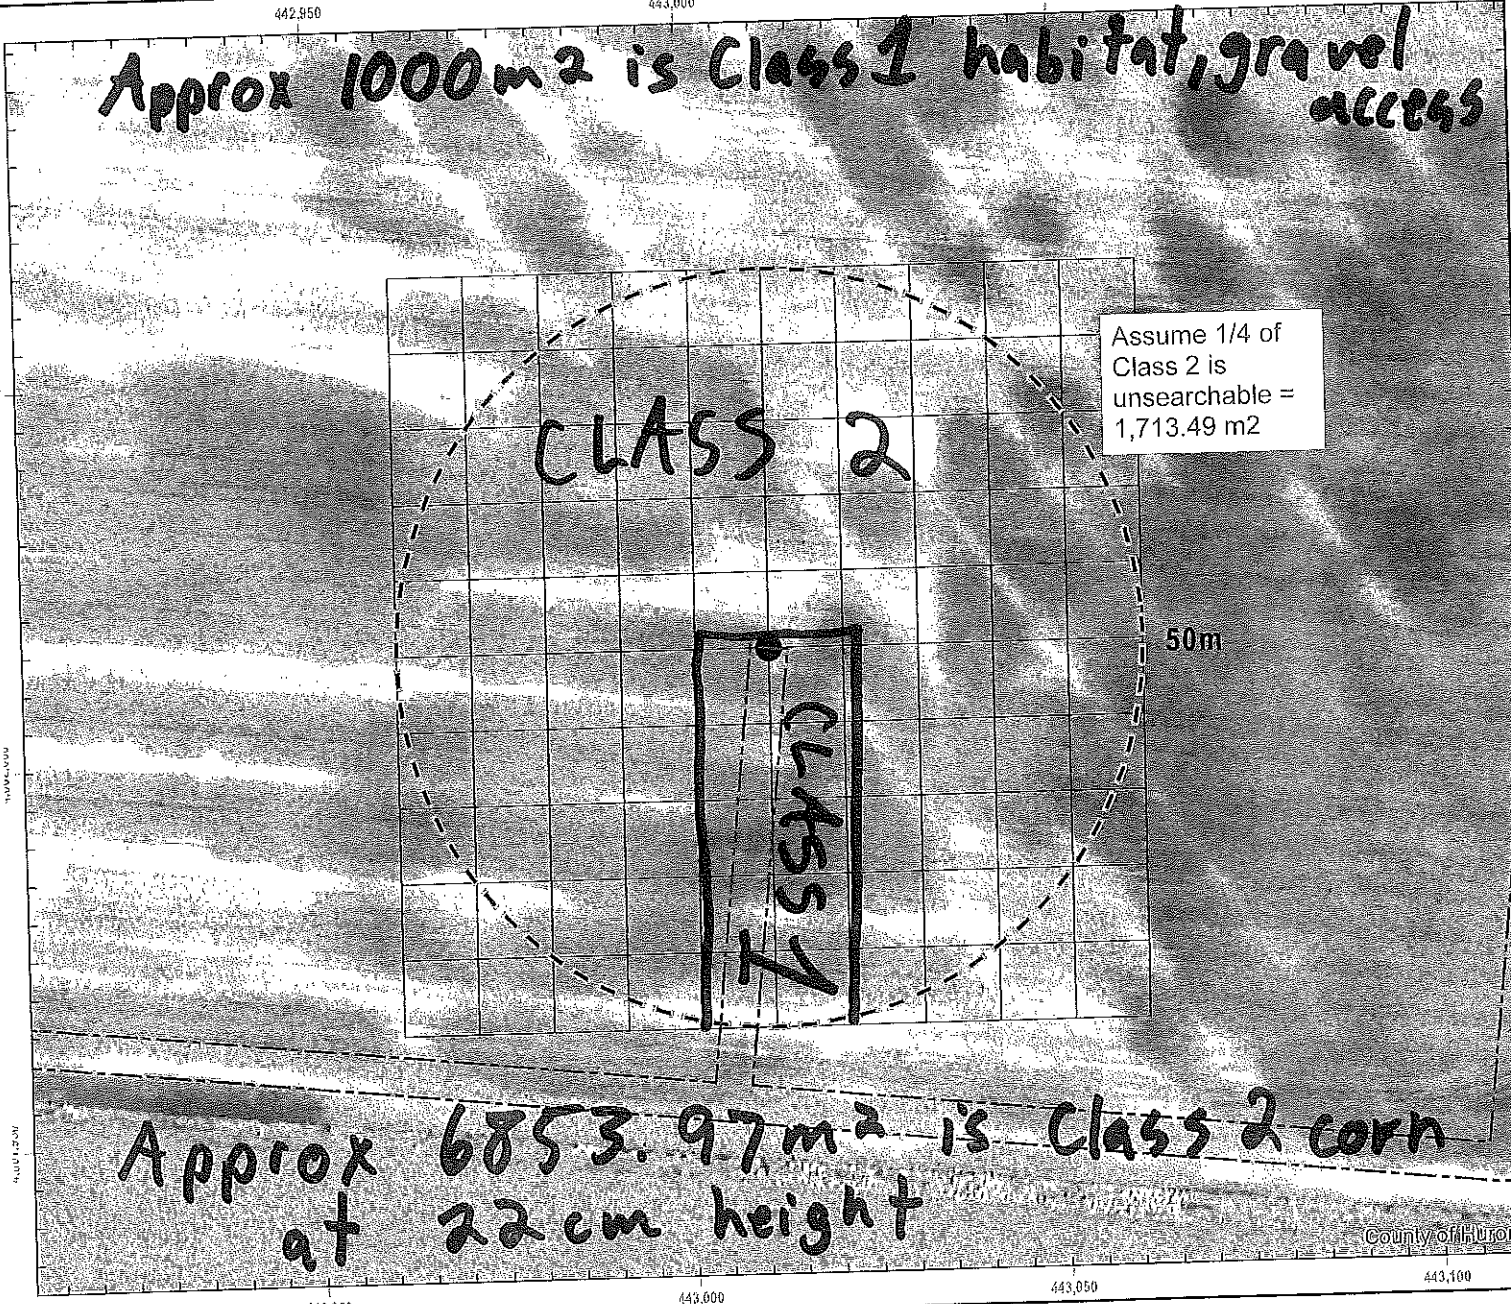 442,950
443,000
Approx 1000m2 is Class1 habitat, gravel
access
Assume 1/4 of
Class 2 is
unsearchable =
1,713.49 m2
CLASS 2
50m
CLASS 1
Approx 6853.97m2 is Class 2 corn
at 22cm height
County of Huron
443,000
443,050
443,100